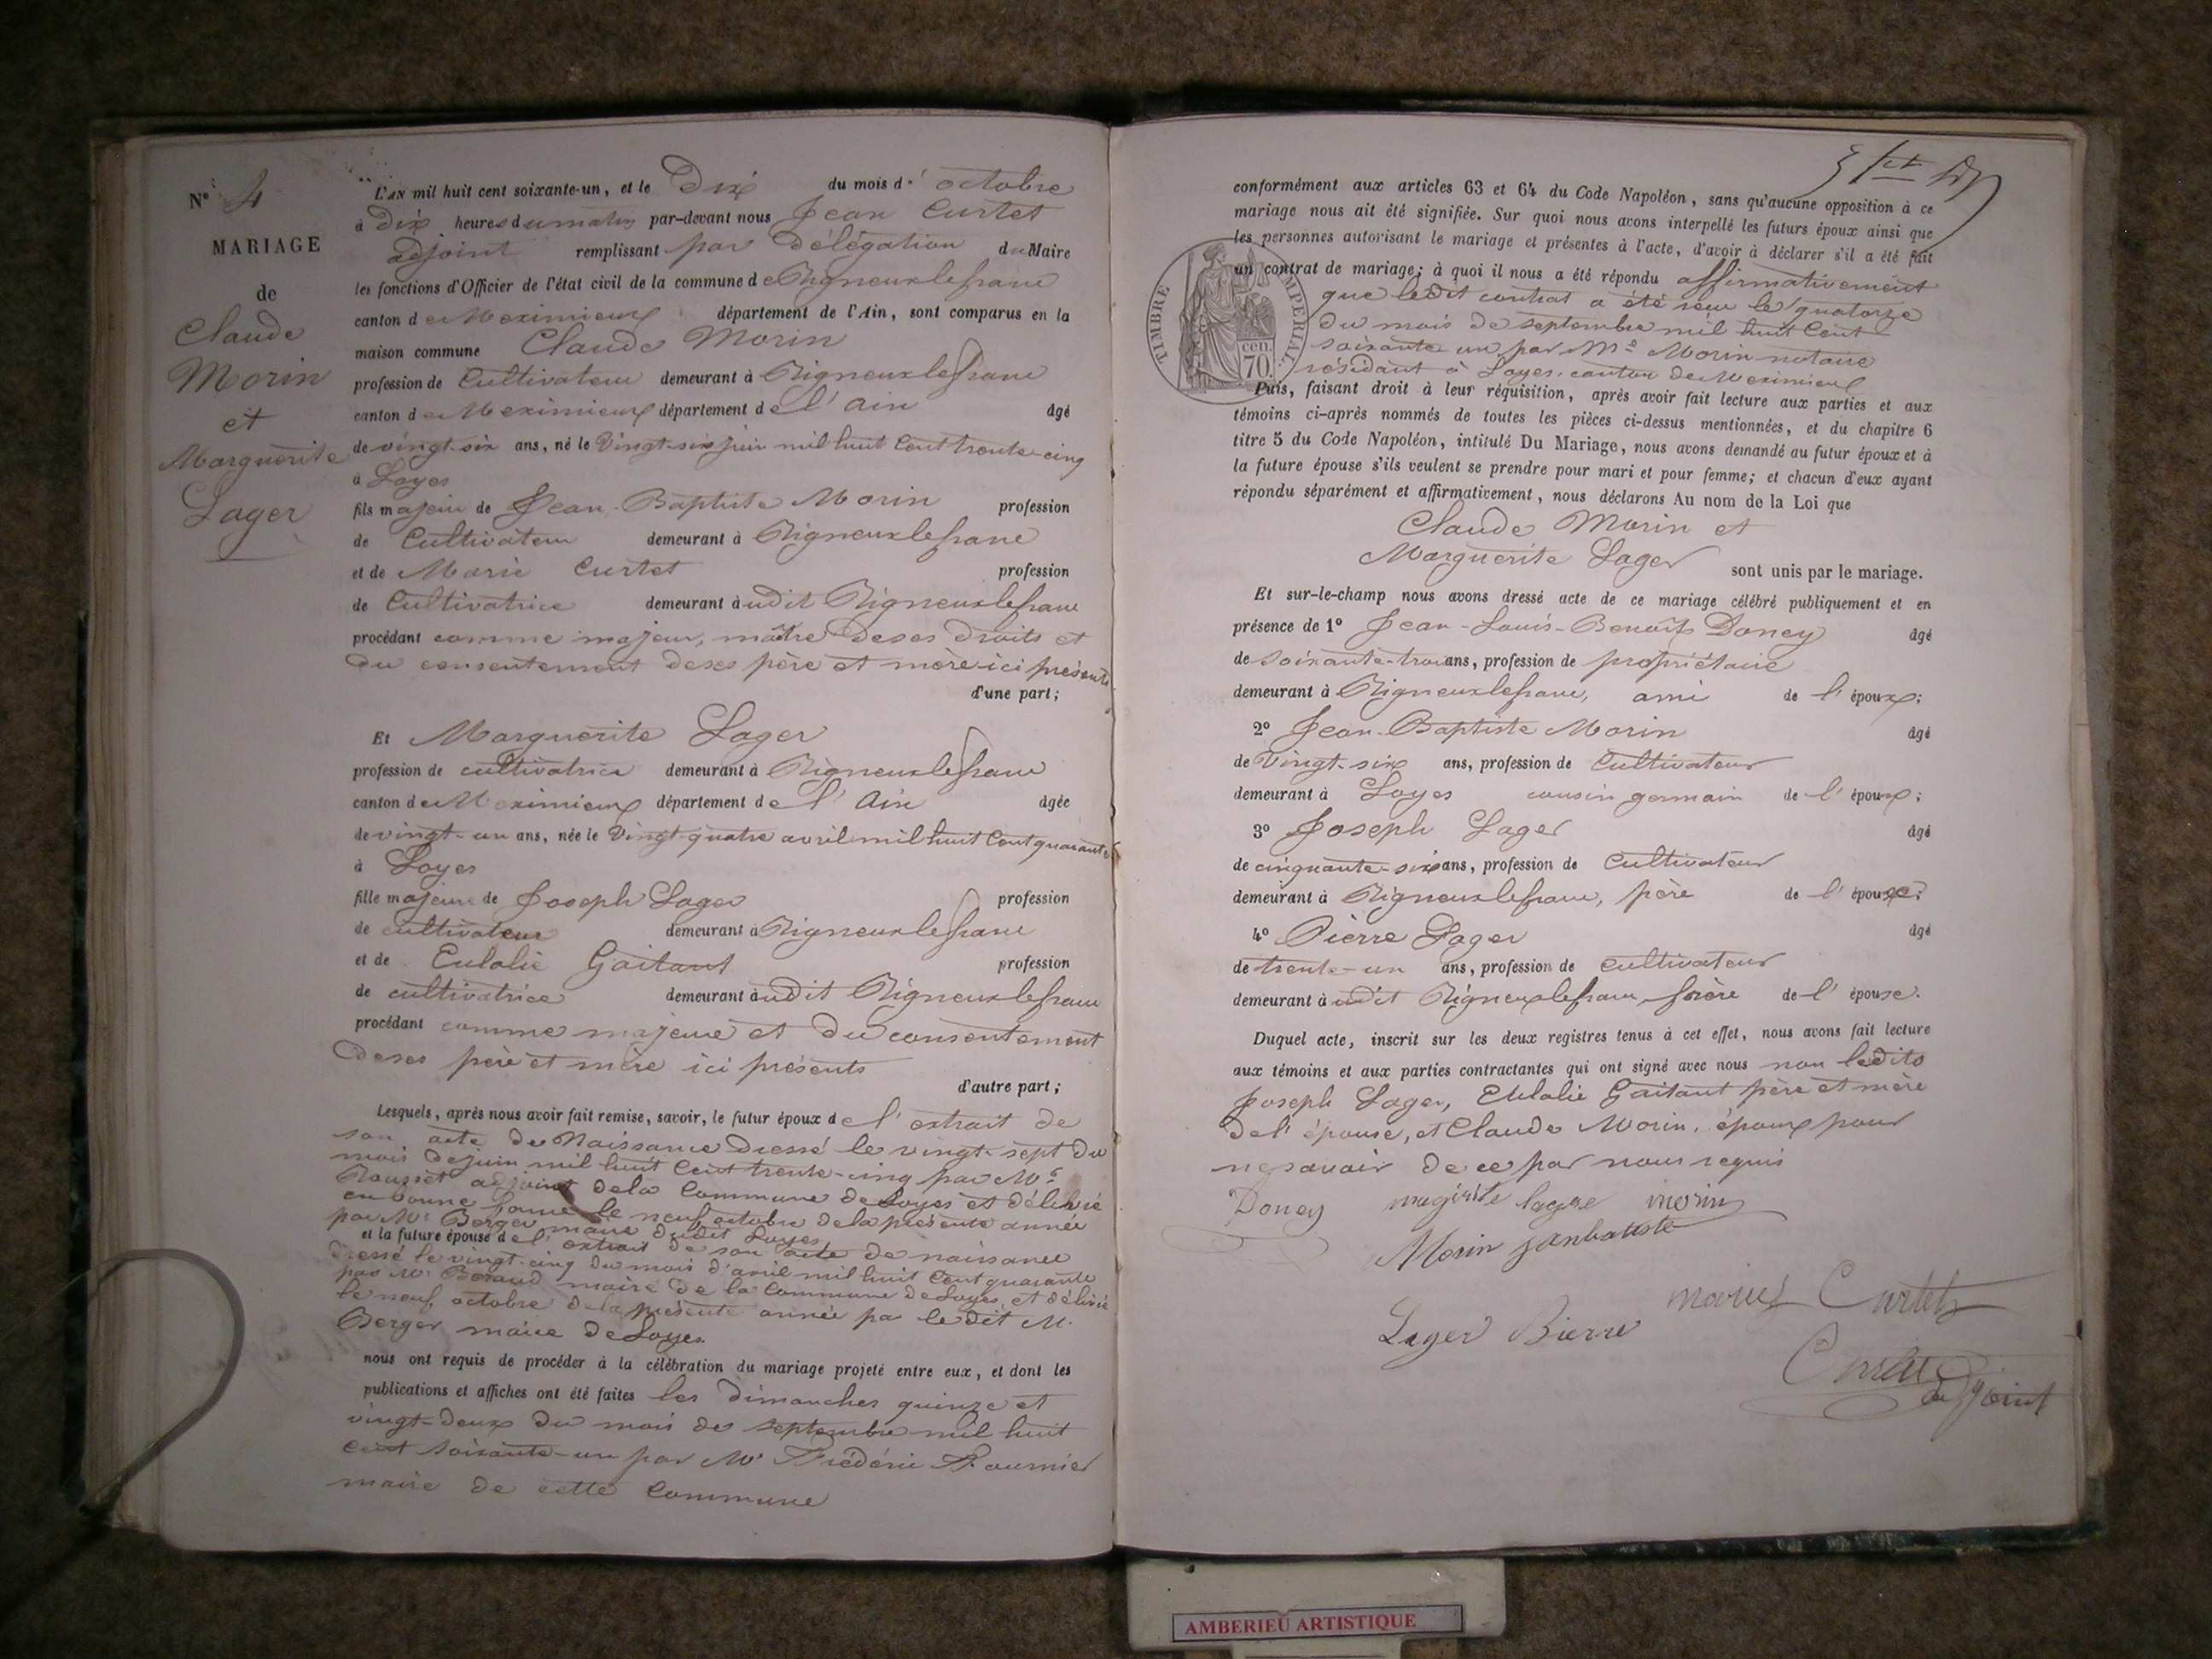 N° 4
MARIAGE
de
Claude
Morin
et
Marguerite
Lager
L'AN mil huit cent soixante-un, et le Dix du mois d' octobre
à Dix heures du matin par-devant nous Jean Curtet
adjoint remplissant par Délégation du Maire
les fonctions d'Officier de l'état civil de la commune de Rigneux le franc
canton de Meximieux département de l'Ain, sont comparus en la
maison commune Claude Morin
profession de Cultivateur demeurant à Rigneux le franc
canton de Meximieux département de l'ain âgé
de vingt-six ans, né le Vingt-six juin mil huit Cent trente-cinq
à Loyes
fils majeur de Jean-Baptiste Morin profession
de Cultivateur demeurant à Rigneux le franc
et de Marie Curtet profession
de Cultivatrice demeurant audit Rigneux le franc
procédant comme majeur, maître de ses droits et
du consentement de ses père et mère ici présents
d'une part;
Et Marguerite Lager
profession de cultivatrice demeurant à Rigneux le franc
canton de Meximieux département de l'Ain âgée
de vingt-un ans, née le Vingt-quatre avril mil huit Cent quarante
à Loyes
fille majeure de Joseph Lager profession
de cultivateur demeurant à Rigneux le franc
et de Eulalie Gaitant profession
de cultivatrice demeurant audit Rigneux le franc
procédant comme majeure et du consentement
de ses père et mère ici présents
d'autre part;
Lesquels, après nous avoir fait remise, savoir, le futur époux de l'extrait de
son acte de Naissance Dressé le vingt-sept du
mois de juin mil huit Cent trente-cinq par Mr
Rousset adjoint de la Commune de Loyes et délivré
en bonne forme le neuf octobre de la présente année
par Mr Berger maire dudit Loyes
et la future épouse de l'extrait de son acte de naissance
dressé le vingt-cinq du mois d'avril mil huit Cent quarante
par Mr Beraud maire de la Commune de Loyes et délivré
le neuf octobre de la présente année par le dit M.
Berger maire de Loyes
nous ont requis de procéder à la célébration du mariage projeté entre eux, et dont les
publications et affiches ont été faites les dimanches quinze et
vingt-deux du mois de septembre mil huit
cent soixante-un par Mr Frédéric Fournier
maire de cette Commune
conformément aux articles 63 et 64 du Code Napoléon, sans qu'aucune opposition à ce
mariage nous ait été signifiée. Sur quoi nous avons interpellé les futurs époux ainsi que
les personnes autorisant le mariage et présentes à l'acte, d'avoir à déclarer s'il a été fait
un contrat de mariage; à quoi il nous a été répondu affirmativement
que ledit contrat a été reçu le quatorze
du mois de septembre mil huit Cent
soixante un par Me Morin notaire
résidant à Loyes, canton de Meximieux
TIMBRE IMPERIAL
cen.
70.
Puis, faisant droit à leur réquisition, après avoir fait lecture aux parties et aux
témoins ci-après nommés de toutes les pièces ci-dessus mentionnées, et du chapitre 6
titre 5 du Code Napoléon, intitulé Du Mariage, nous avons demandé au futur époux et à
la future épouse s'ils veulent se prendre pour mari et pour femme; et chacun d'eux ayant
répondu séparément et affirmativement, nous déclarons Au nom de la Loi que
Claude Morin et
Marguerite Lager sont unis par le mariage.
Et sur-le-champ nous avons dressé acte de ce mariage célébré publiquement et en
présence de 1° Jean-Louis-Benoît Doney âgé
de soixante-trois ans, profession de propriétaire
demeurant à Rigneux le franc, ami de l'époux;
2° Jean-Baptiste Morin âgé
de Vingt-six ans, profession de Cultivateur
demeurant à Loyes cousin germain de l'époux;
3° Joseph Lager âgé
de cinquante-six ans, profession de Cultivateur
demeurant à Rigneux le franc, père de l'épouse;
4° Pierre Lager âgé
de trente-un ans, profession de Cultivateur
demeurant audit Rigneux le franc, frère de l'épouse.
Duquel acte, inscrit sur les deux registres tenus à cet effet, nous avons fait lecture
aux témoins et aux parties contractantes qui ont signé avec nous non lesdits
Joseph Lager, Eulalie Gaitant père et mère
de l'épouse, et Claude Morin, époux pour
ne savoir de ce par nous requis
Doney magirite lagere morin
Morin janbatiste
Lager Bierre
marie Curtet
Curtet
adjoint
AMBERIEU ARTISTIQUE